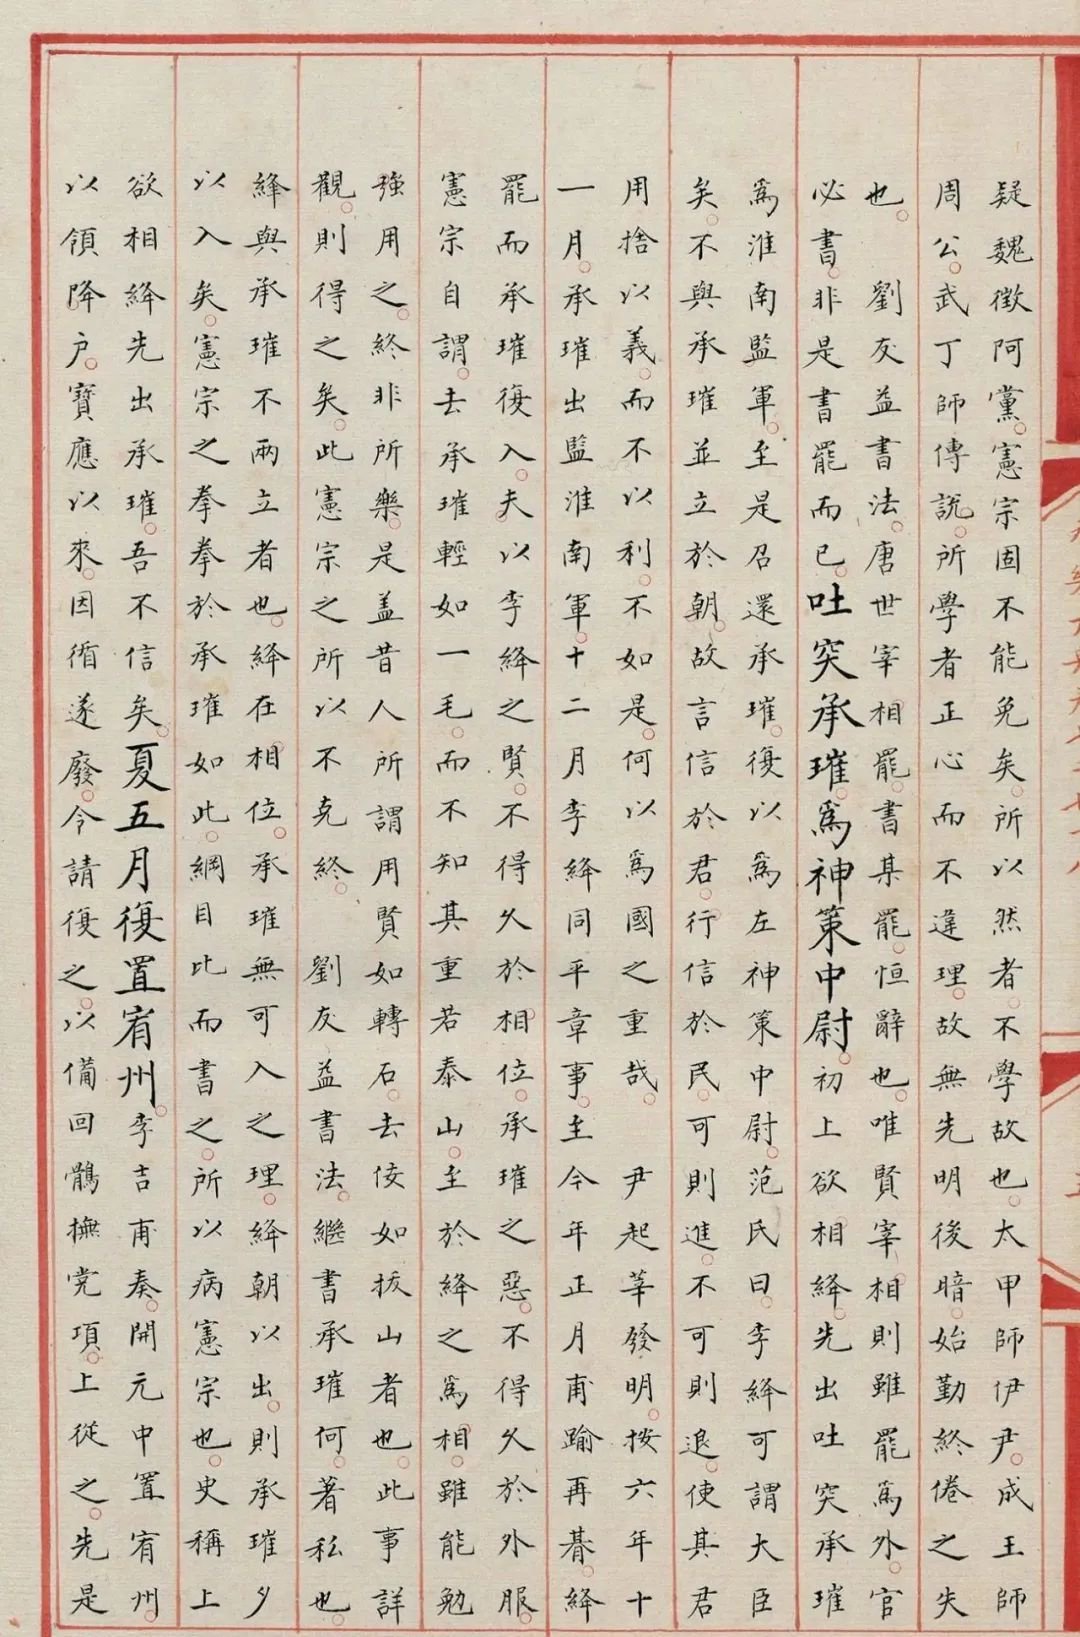 疑魏徵阿黨憲宗固不能免矣所以然者不學故也太甲師伊尹成王師
周公武丁師傅說所學者正心而不違理故無先明後暗始勤終倦之失
也　劉友益書法唐世宰相罷書某罷恒辭也唯賢宰相則雖罷爲外官
必書非是書罷而已吐突承璀爲神策中尉初上欲相絳先出吐突承璀
爲淮南監軍至是召還承璀復以爲左神策中尉范氏曰李絳可謂大臣
矣不與承璀並立於朝故言信於君行信於民可則進不可則退使其君
用捨以義而不以利不如是何以爲國之重哉　尹起莘發明按六年十
一月承璀出監淮南軍十二月李絳同平章事至今年正月甫踰再朞絳
罷而承璀復入夫以李絳之賢不得久於相位承璀之惡不得久於外服
憲宗自謂去承璀輕如一毛而不知其重若泰山至於絳之爲相雖能勉
強用之終非所樂是盖昔人所謂用賢如轉石去佞如拔山者也此事詳
觀則得之矣此憲宗之所以不克終　劉友益書法繼書承璀何著私也
絳與承璀不兩立者也絳在相位承璀無可入之理絳朝以出則承璀夕
以入矣憲宗之拳拳於承璀如此綱目比而書之所以病憲宗也史稱上
欲相絳先出承璀吾不信矣夏五月復置宥州李吉甫奏開元中置宥州
以領降戶寶應以來因循遂廢今請復之以備回鶻撫党項上從之先是